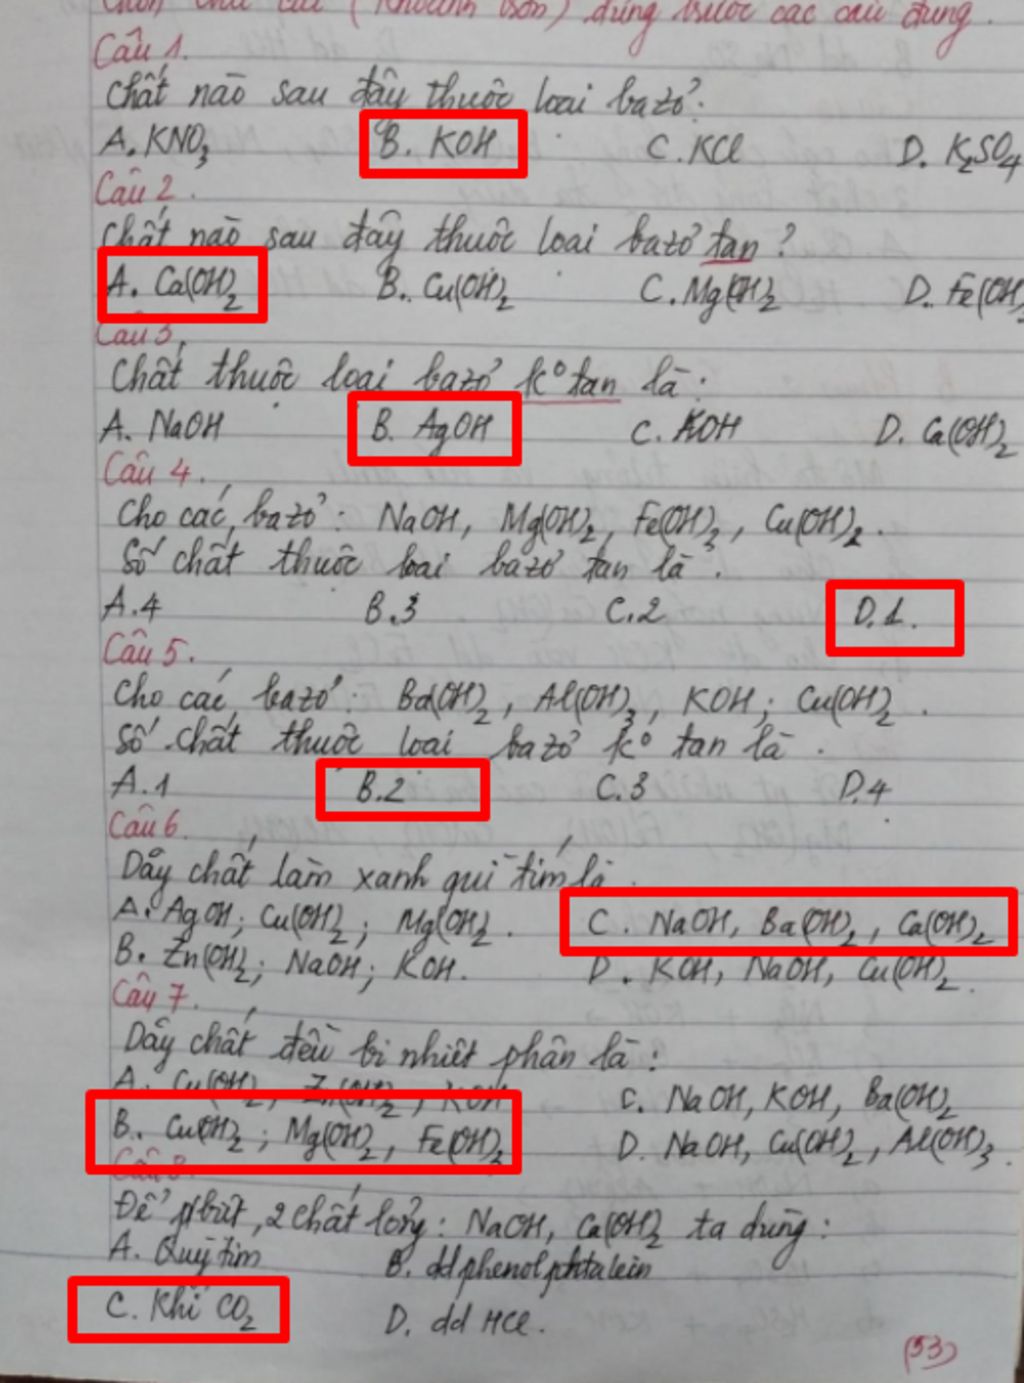 chữ cái (khoanh tròn) đứng trước các câu đúng.
Câu 1.
Chất nào sau đây thuộc loại bazơ:
A. KNO3 B. KOH C. KCl D. K2SO4
Câu 2.
Chất nào sau đây thuộc loại bazơ tan?
A. Ca(OH)2 B. Cu(OH)2 C. Mg(OH)2 D. Fe(OH)
Câu 3.
Chất thuộc loại bazơ kº tan là:
A. NaOH B. AgOH C. KOH D. Ca(OH)2
Câu 4.
Cho các bazơ: NaOH, Mg(OH)2, Fe(OH)3, Cu(OH)2.
Số chất thuộc loại bazơ tan là.
A. 4 B. 3 C. 2 D. 1.
Câu 5.
Cho các bazơ: Ba(OH)2, Al(OH)3, KOH; Cu(OH)2.
Số chất thuộc loại bazơ kº tan là.
A. 1 B. 2 C. 3 D. 4
Câu 6.
Dãy chất làm xanh quì tím là.
A. AgOH; Cu(OH)2; Mg(OH)2. C. NaOH, Ba(OH)2, Ca(OH)2
B. Zn(OH)2; NaOH; KOH. D. KOH, NaOH, Cu(OH)2.
Câu 7.
Dãy chất đều bị nhiệt phân là:
A. Cu(OH)2, Zn(OH)2, KOH C. NaOH, KOH, Ba(OH)2
B. Cu(OH)2; Mg(OH)2, Fe(OH)2 D. NaOH, Cu(OH)2, Al(OH)3.
Câu 8.
Để pbiệt 2 chất lỏng: NaOH, Ca(OH)2 ta dùng:
A. Quỳ tím B. dd phenolphtalein
C. Khí CO2 D. dd HCl.
(53)